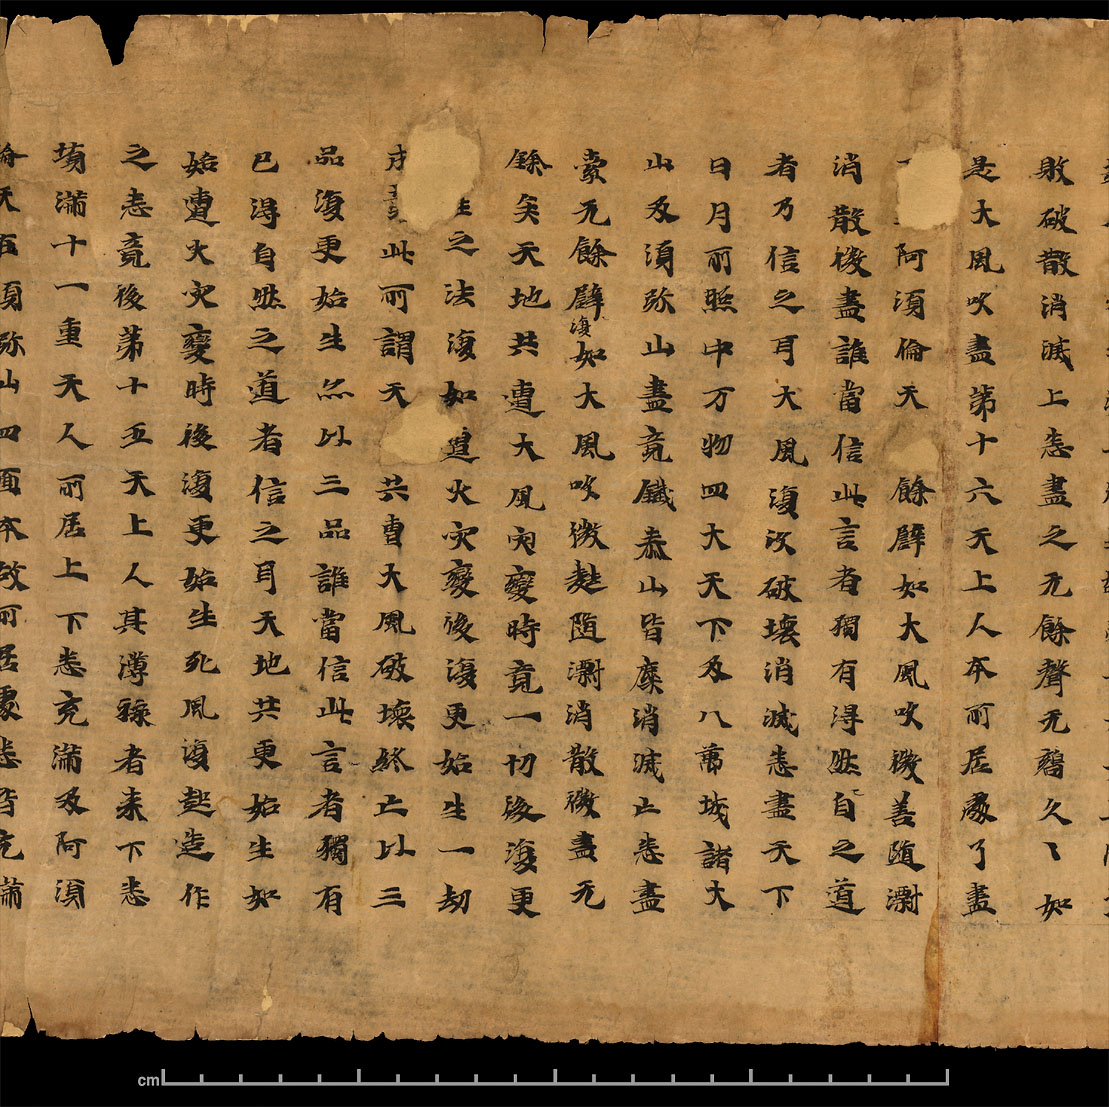 敗破散消滅上悉盡之无餘聲无磬久〻如
是大風吹盡第十六天上人本所居處了盡
阿湏倫天餘辟如大風吹微善随澍
消散微盡誰當信此言者獨有淂然自之道
者乃信之耳大風復次破壞消滅悉盡天下
日月所照中万物四大天下及八萬城諸大
山及湏弥山盡竟鐵泰山皆糜消滅亡悉盡
索无餘辟復如大風吹微塵随澍消散微盡无
餘矣天地共遭大風灾變時竟一切後復更
生之法復如遭火灾變後復更始生一劫
此所謂天共曹大風破壞終亡以三
品復更始生然以三品誰當信此言者獨有
已淂自然之道者信之耳天地共更始生如
始遭火灾變時後復更始生死風復起造作
之悉竟後第十五天上人其薄祿者来下悉
填滿十一重天人所居上下悉充滿及阿湏
倫天百湏弥山四面本故所居處悉皆充滿